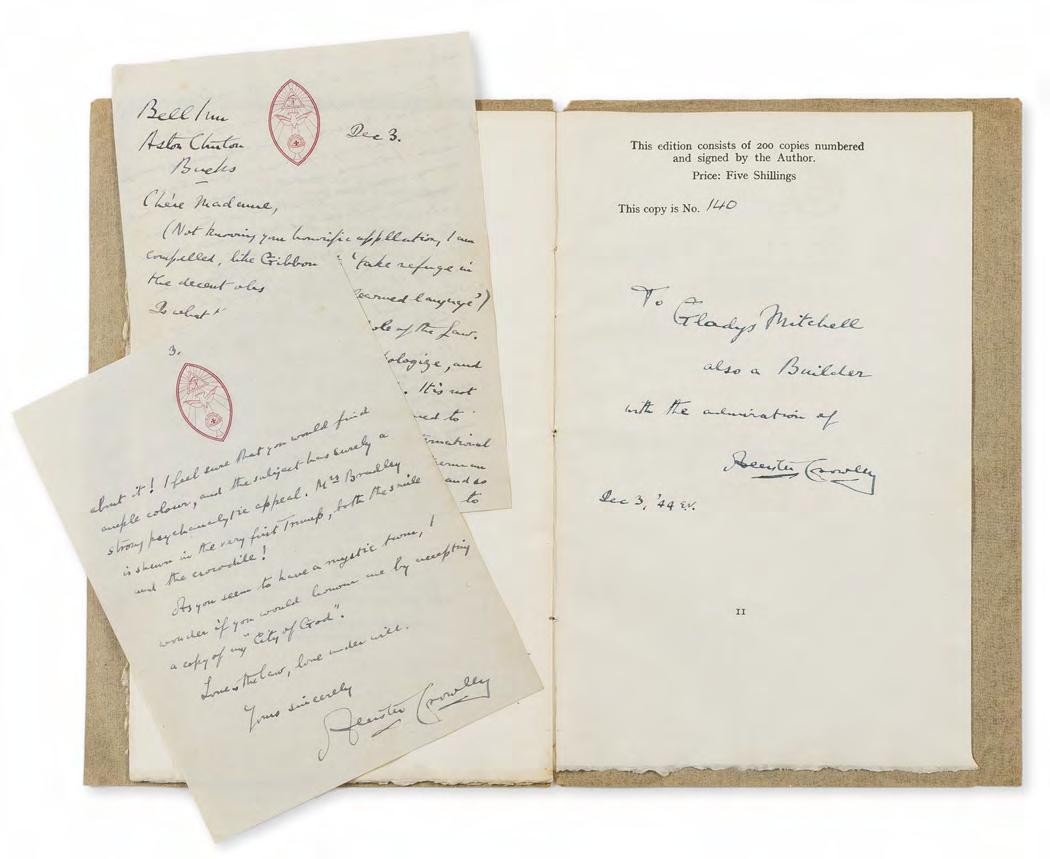 Bell Inn
Aston Clinton
Bucks
Dec 3.
Chère Madame,
(Not knowing your honorific appellation, I am
compelled, like Gibbon "take refuge in
the decent obs
earned language")
Do what
ole of the Law.
ologize, and
. It is not
ed to
rnational
erman
and so
to
3.
about it! I feel sure that you would find
ample colour, and the subject has surely a
strong psychanalytic appeal. Mrs Bradley
is shewn in the very first Trump, both the smile
and the crocodile!
As you seem to have a mystic turn, I
wonder if you would honour me by accepting
a copy of my "City of God".
Love is the law, love under will.
Yours sincerely
Aleister Crowley
This edition consists of 200 copies numbered
and signed by the Author.
Price: Five Shillings
This copy is No. 140
To
Gladys Mitchell
also a Builder
with the admiration of
Aleister Crowley
Dec 3, '44 e.v.
II